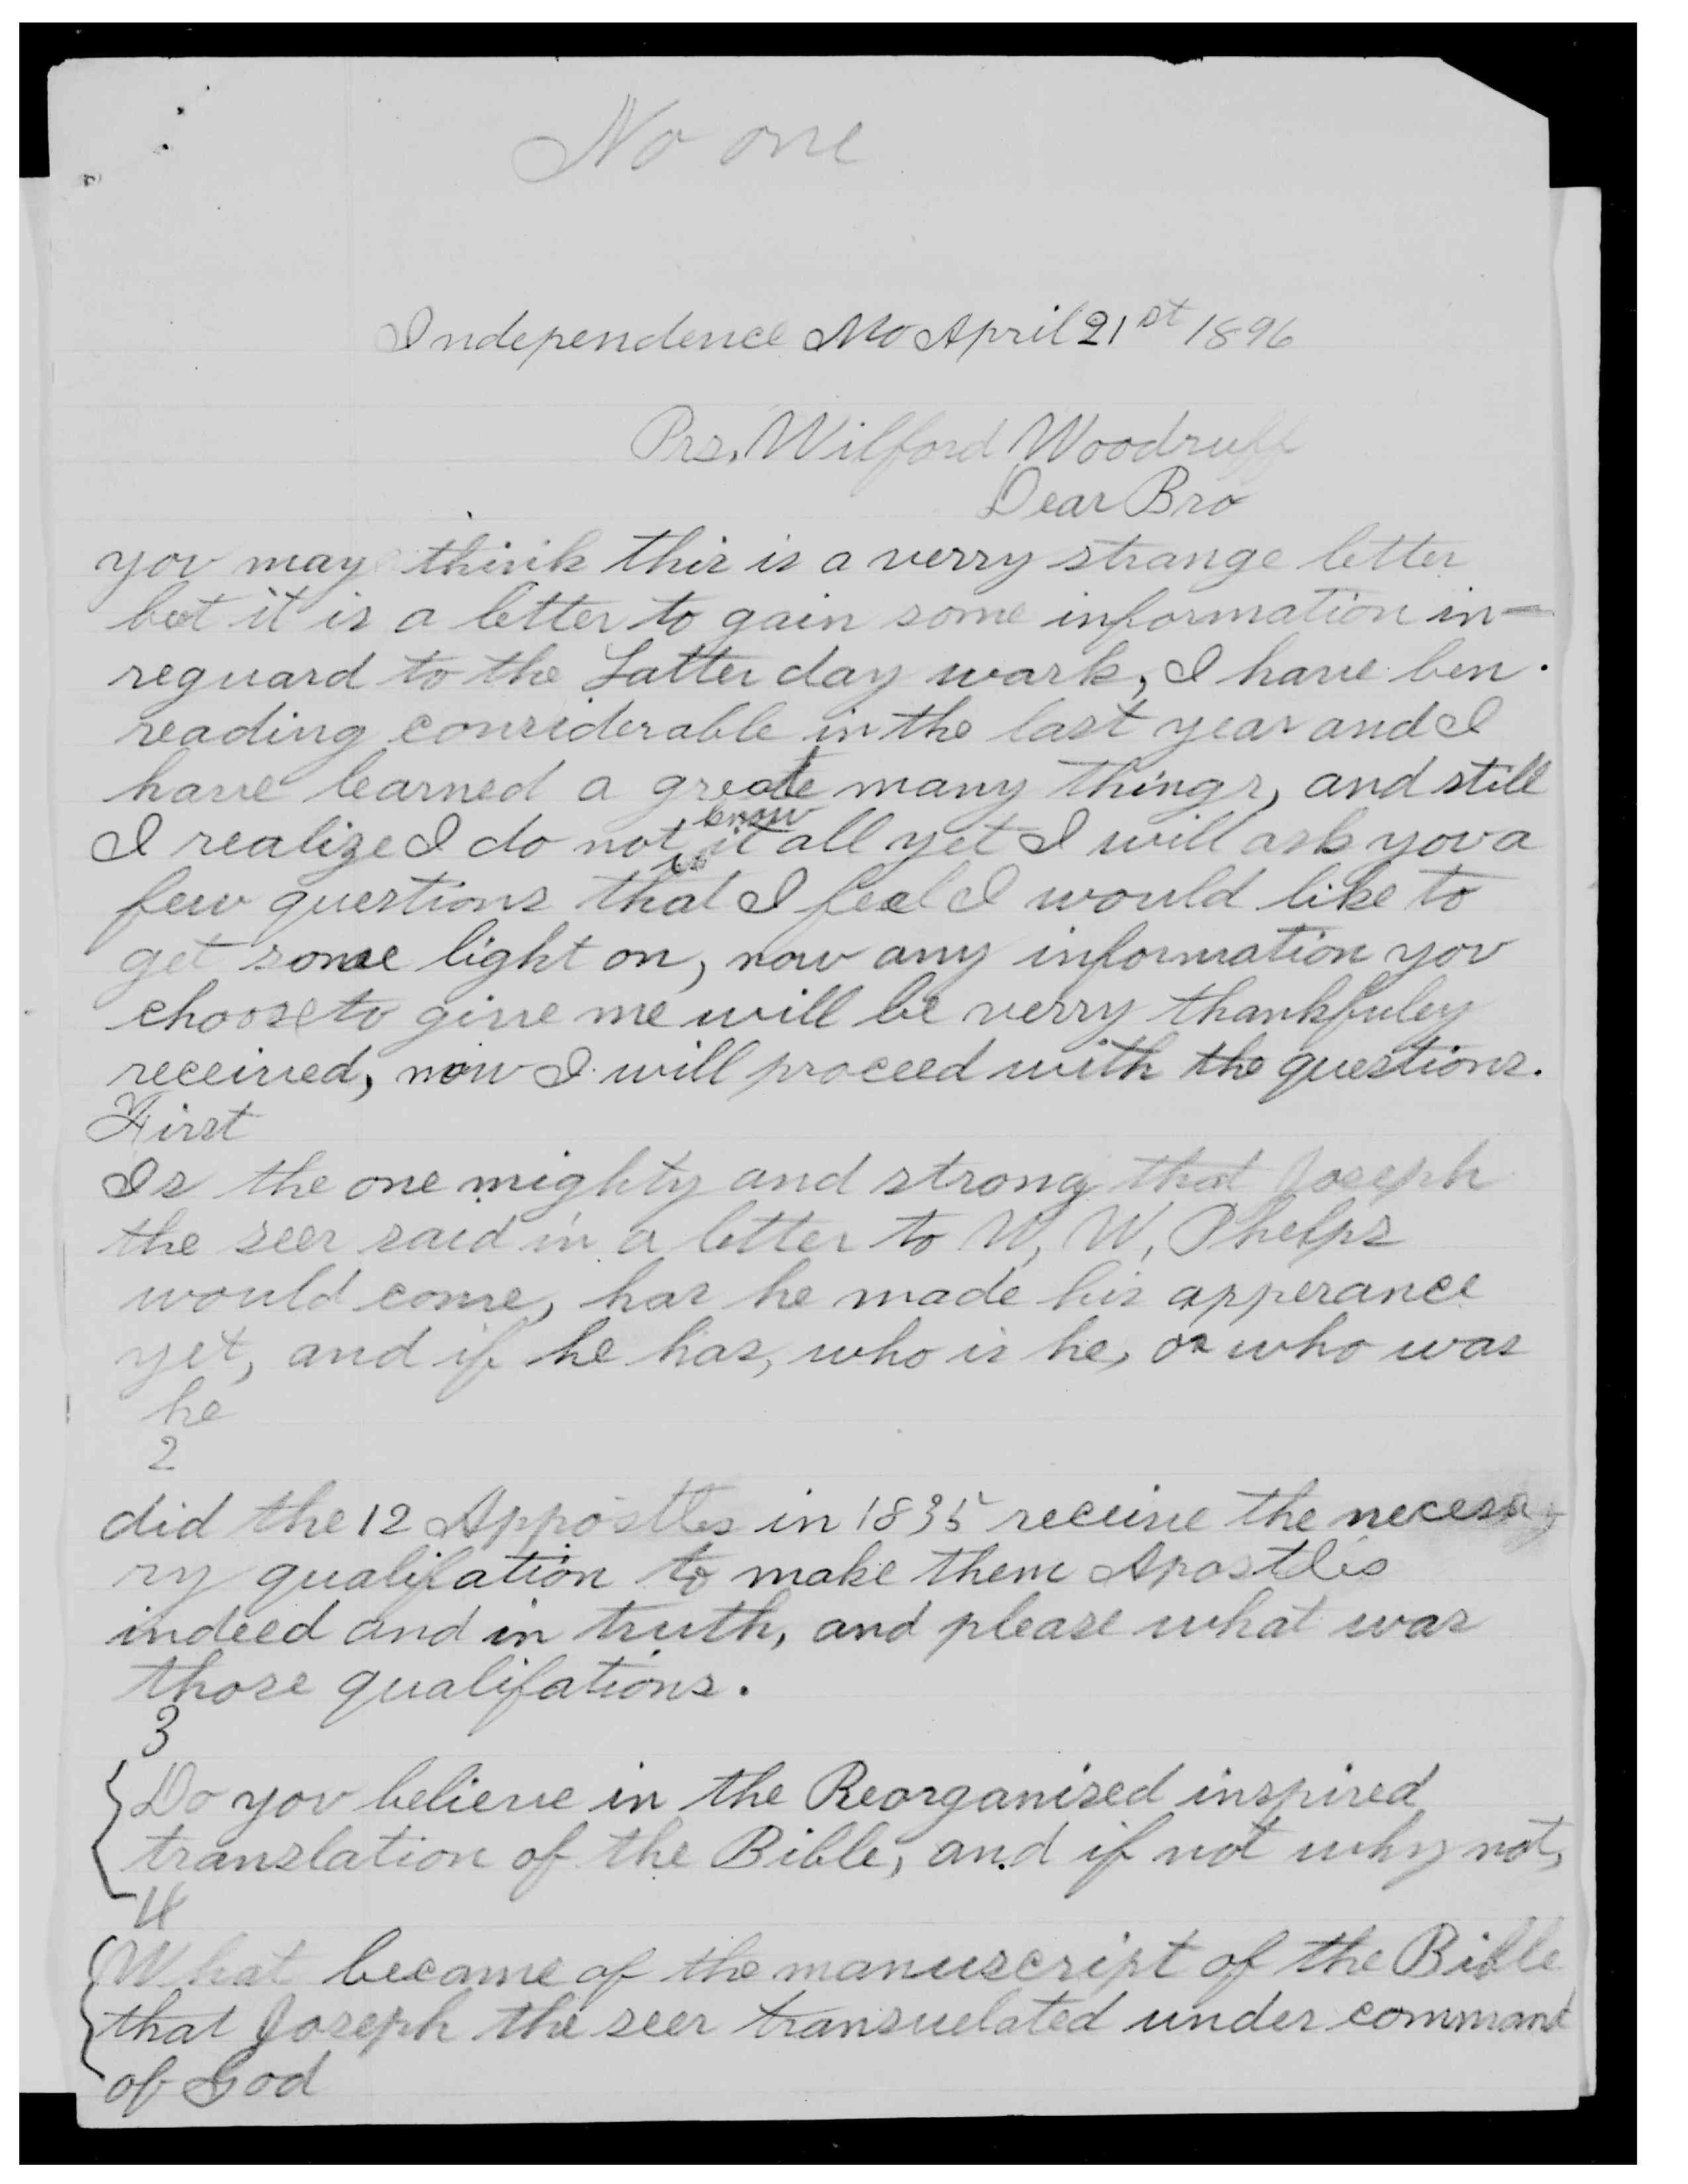 No one
Independence Mo April 21st 1896
Prs, Wilford Woodruff
Dear Bro
yov may think this is a verry strange letter
but it is a letter to gain some information in-
reguard to the Latter day work, I have ben.
reading considerable in the last year and I
have learned a greate many things, and still
I realize I do not know it all yet I will ask yov a
few questions that I feel I would like to
get some light on, now any information yov
choose to give me will be verry thankfuley
received, now I will proceed with the questions.
First
Is the one mighty and strong that Joseph
the seer said in a letter to W, W, Phelps
would come, has he made his apperance
yet, and if he has, who is he, or who was
he
2
did the 12 Appostles in 1835 receive the necessa
ry qualifation to make them Apostles
indeed and in truth, and please what was
those qualifations.
3
Do yov believe in the Reorganised inspired
translation of the Bible, and if not why not,
4
What became of the manuscript of the Bible
that Joseph the seer transuelated under command
of God